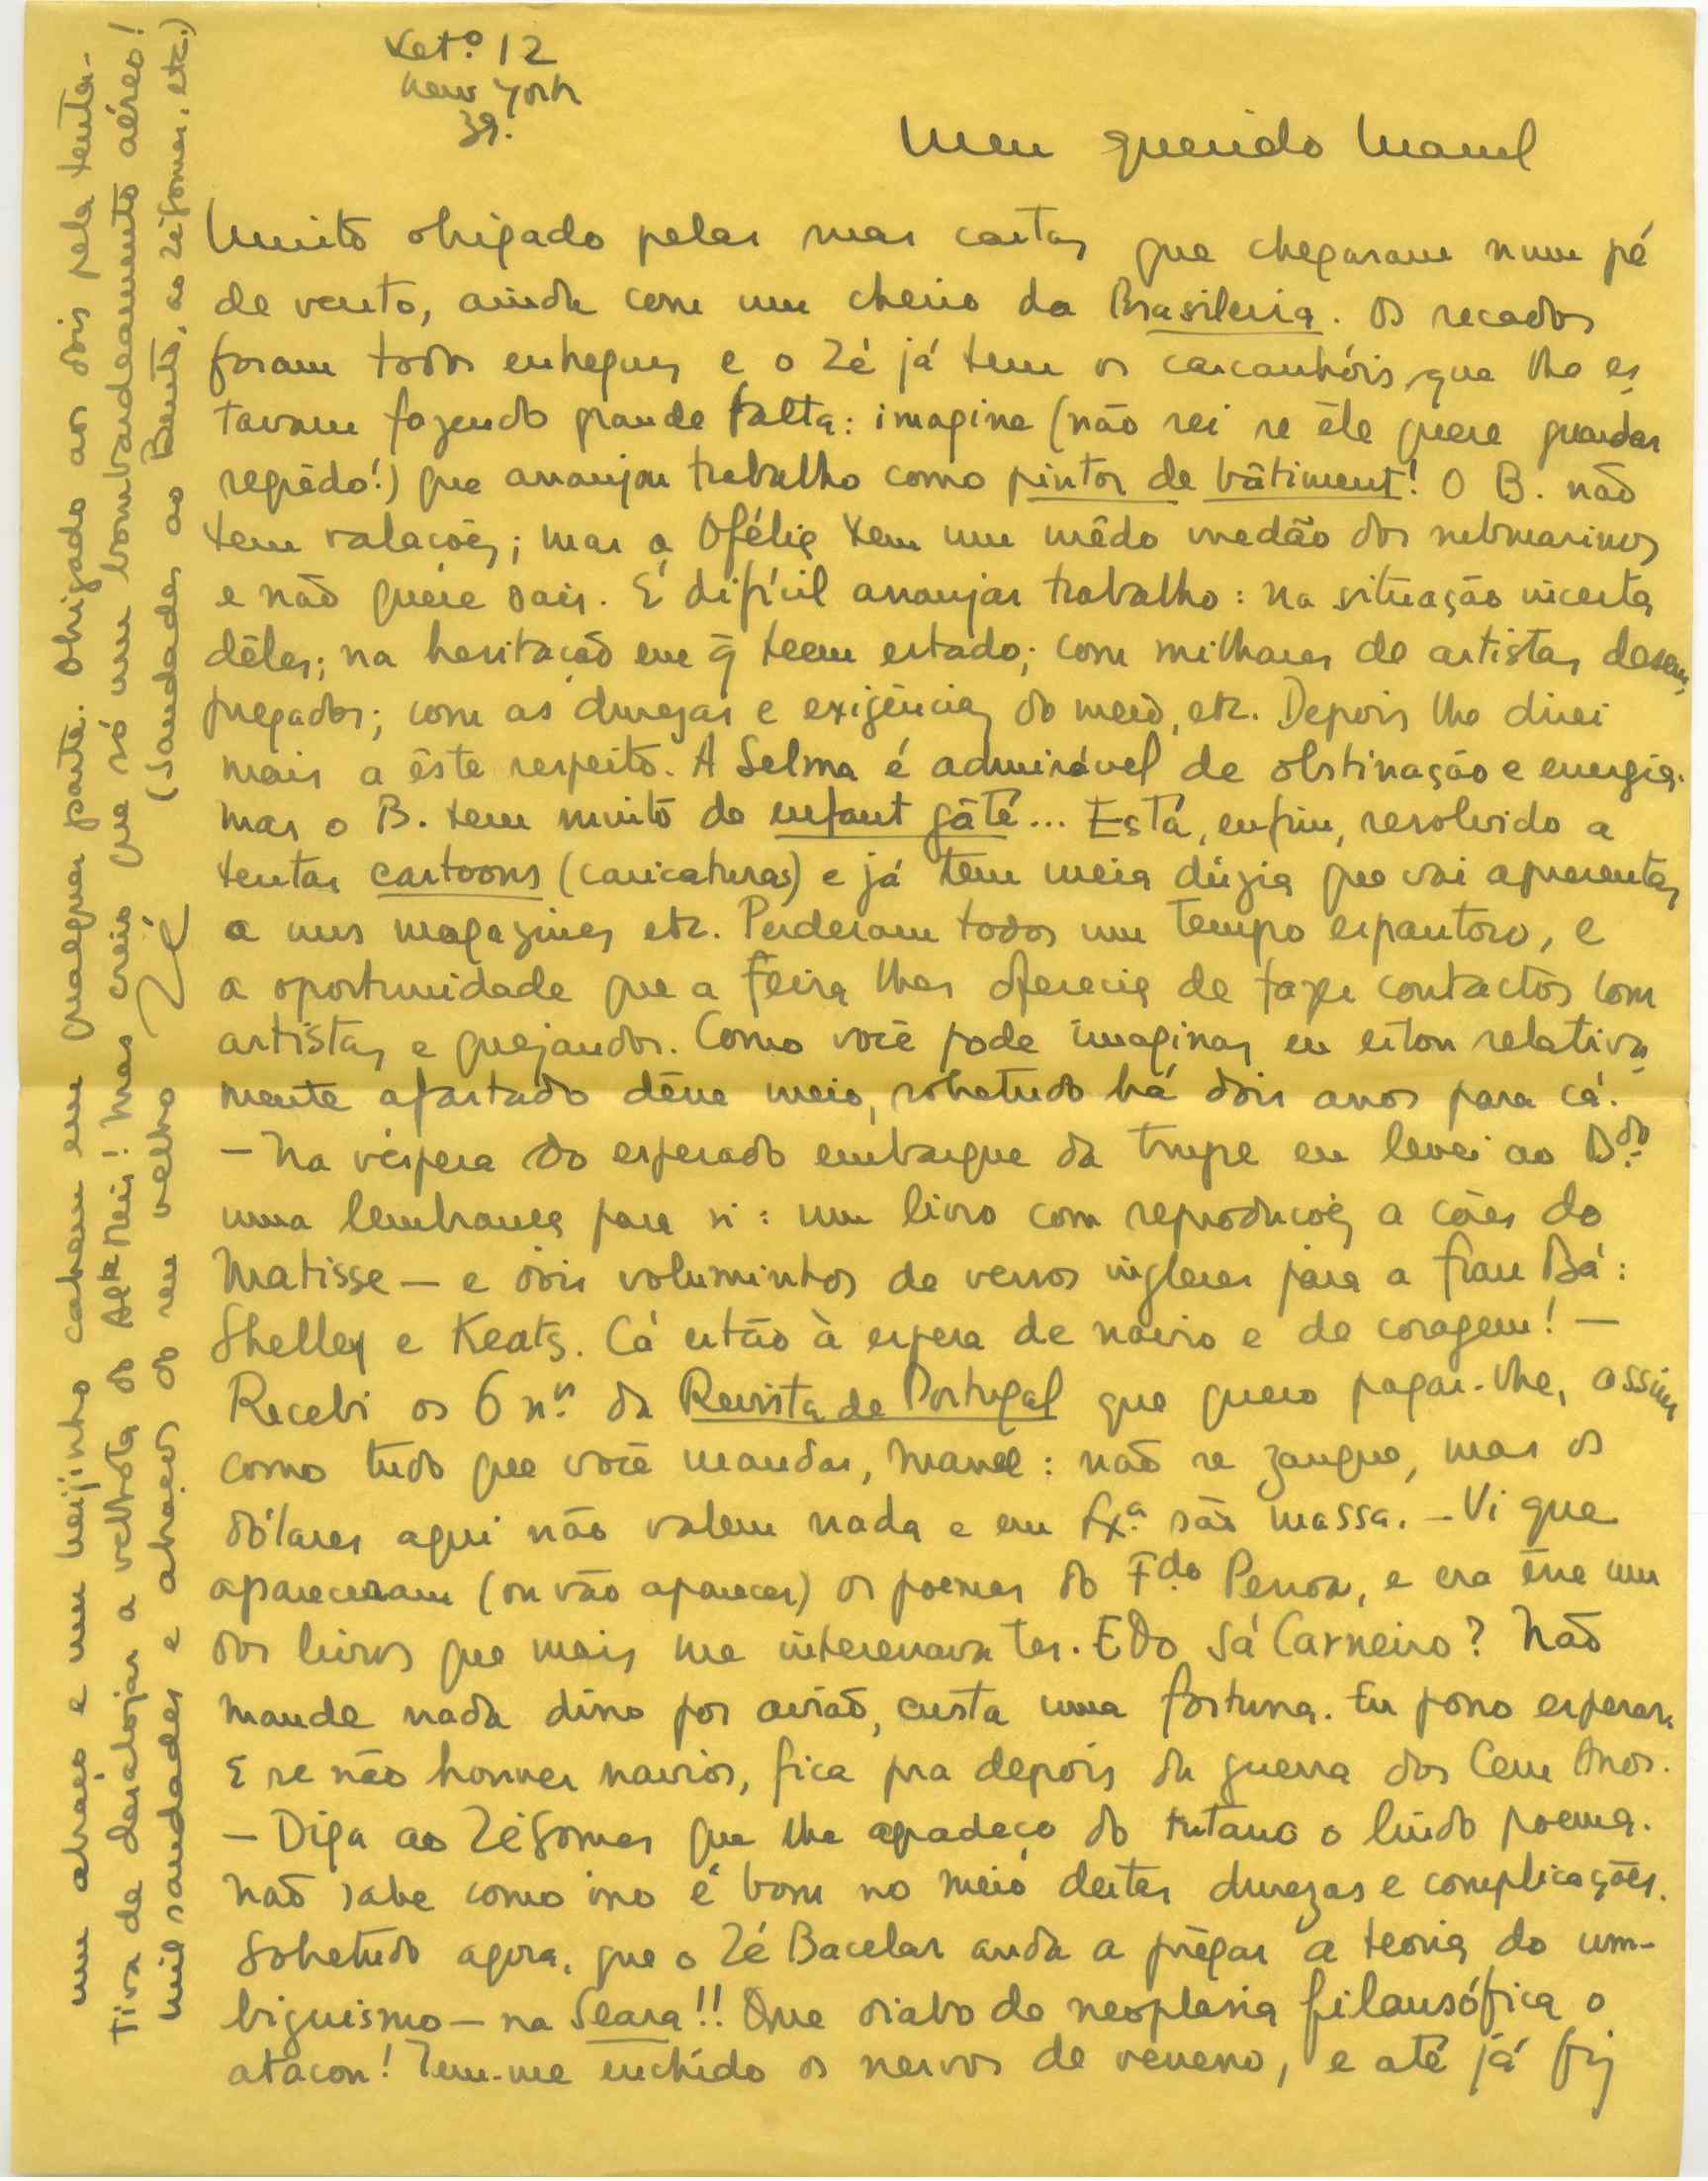 Set.º 12
New York
39.
Meu querido Manel
Muito obrigado pelas suas cartas que chegaram num pé
de vento, ainda com um cheiro da Brasileira. Os recados
foram todos entregues e o Zé já tem os carcanhóis que lhe es
tavam fazendo grande falta: imagine (não sei se êle quere guardar
segrêdo!) que arranjou trabalho como pintor de bâtiment! O B. não
tem ralações; mas a Ofélia tem um mêdo medão dos submarinos
e não quere sair. É difícil arranjar trabalho: na situação incerta
dêles; na hesitação em q̃ teem estado; com milhares de artistas desem
pregados; com as durezas e exigências do meio, etc. Depois lhe direi
mais a êste respeito. A Selma é admirável de obstinação e energia.
Mas o B. tem muito de enfant gâté... Está, enfim, resolvido a
tentar cartoons (caricaturas) e já tem meia dúzia que vai apresentar
a uns magazines etc. Perderam todos um tempo espantoso, e
a oportunidade que a Feira lhes oferecia de fazer contactos com
artistas e quejandos. Como você pode imaginar eu estou relativa
mente afastado dêsse meio, sobretudo há dois anos para cá.
- Na véspera do esperado embarque da trupe eu levei ao B.do
uma lembrança para si: um livro com reproduções a côres do
Matisse — e dois voluminhos de versos ingleses para a frau Bá:
Shelley e Keats. Cá estão à espera de navio e de coragem! —
Recebi os 6 n.os da Revista de Portugal que quero pagar-lhe, assim
como tudo que você mandar, Manel: não se zangue, mas os
dólares aqui não valem nada e em Lx.ª são massa. - Vi que
apareceram (ou vão aparecer) os poemas do F.do Pessoa, e era êsse um
dos livros que mais me interessava ter. E do Sá Carneiro? Não
mande nada disso por avião, custa uma fortuna. Eu posso esperar.
E se não houver navios, fica pra depois da guerra dos Cem Anos.
- Diga ao Zé Gomes que lhe agradeço do tutano o lindo poema.
Não sabe como isso é bom no meio destas durezas e complicações.
Sobretudo agora, que o Zé Bacelar anda a prègar a teoria do um-
biguismo — na Seara!! Que diabo de neoplasia filausófica o
atacou! Tem-me enchido os nervos de veneno, e até já fiz
um abraço e um beijinho cabem em qualquer parte. Obrigado aos dois pela tenta-
tiva de desalojar a velhota do Reis! Mas creio que só um bombardeamento aéreo!
Mil saudades e abraços do seu velho Zé (Saudades ao Bento, ao Zé Gomes, etc.)